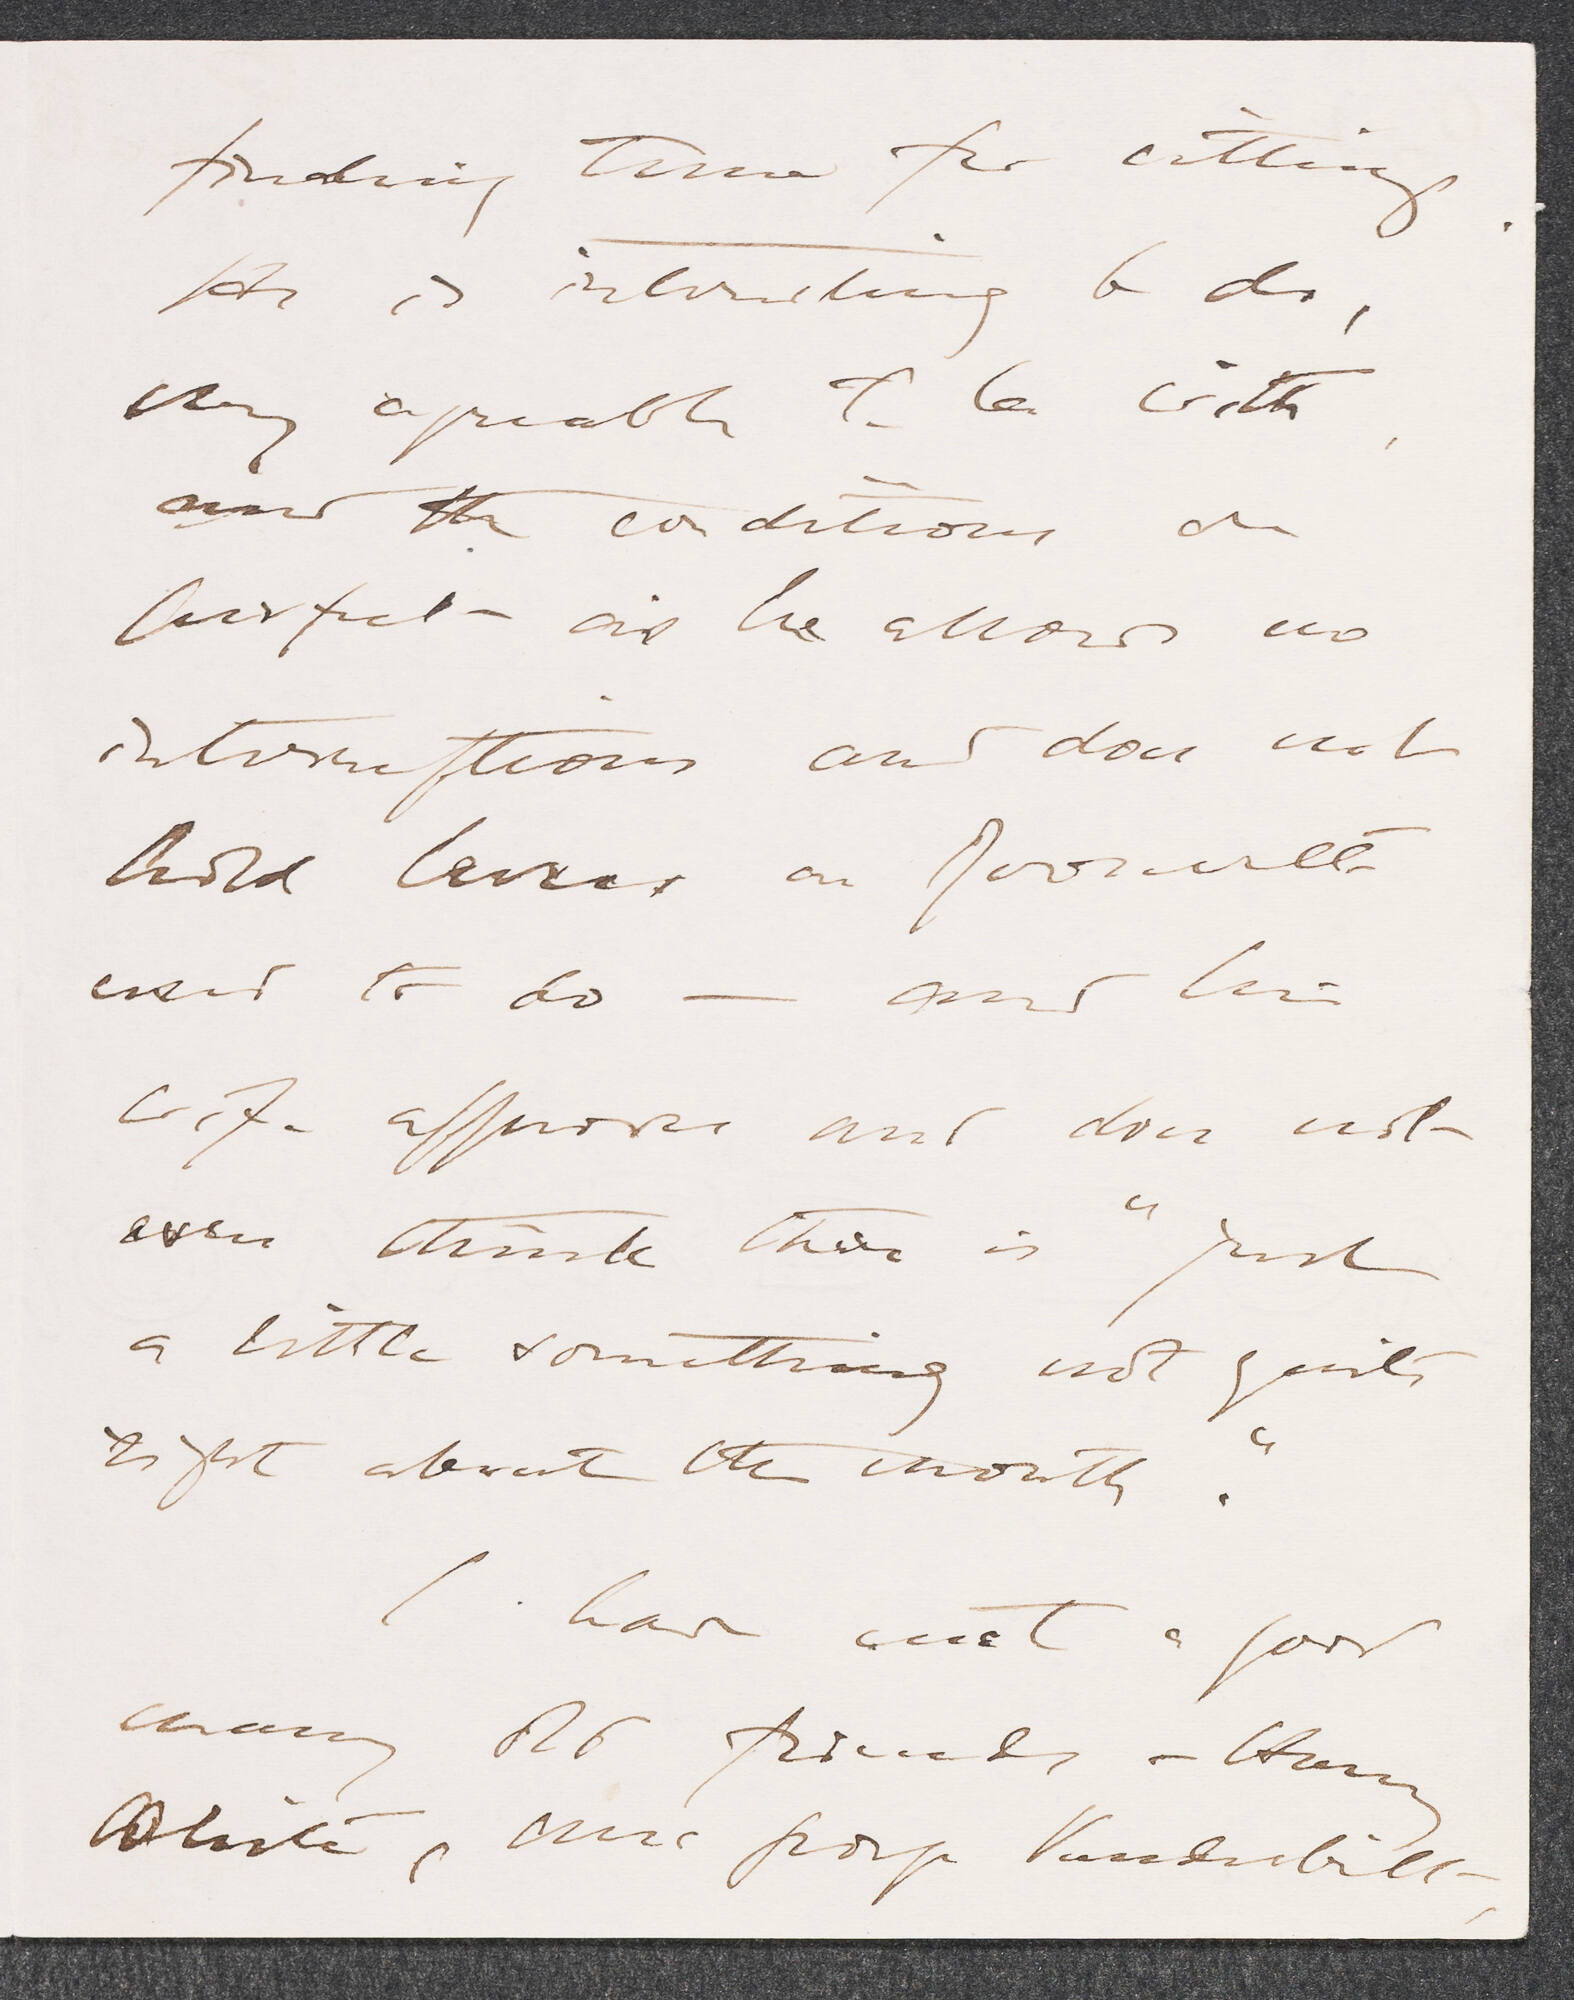 finding time for sitting.
He is interesting to do,
very agreeable to be with,
and the conditions are
perfect as he allows no
interruptions and does not
hold levees as Roosevelt
used to do — and his
wife approves and does not
even think there is "just
a little something not quite
right about the mouth."
I have met a good
many old friends - Harry
White, Mrs George Vanderbilt,